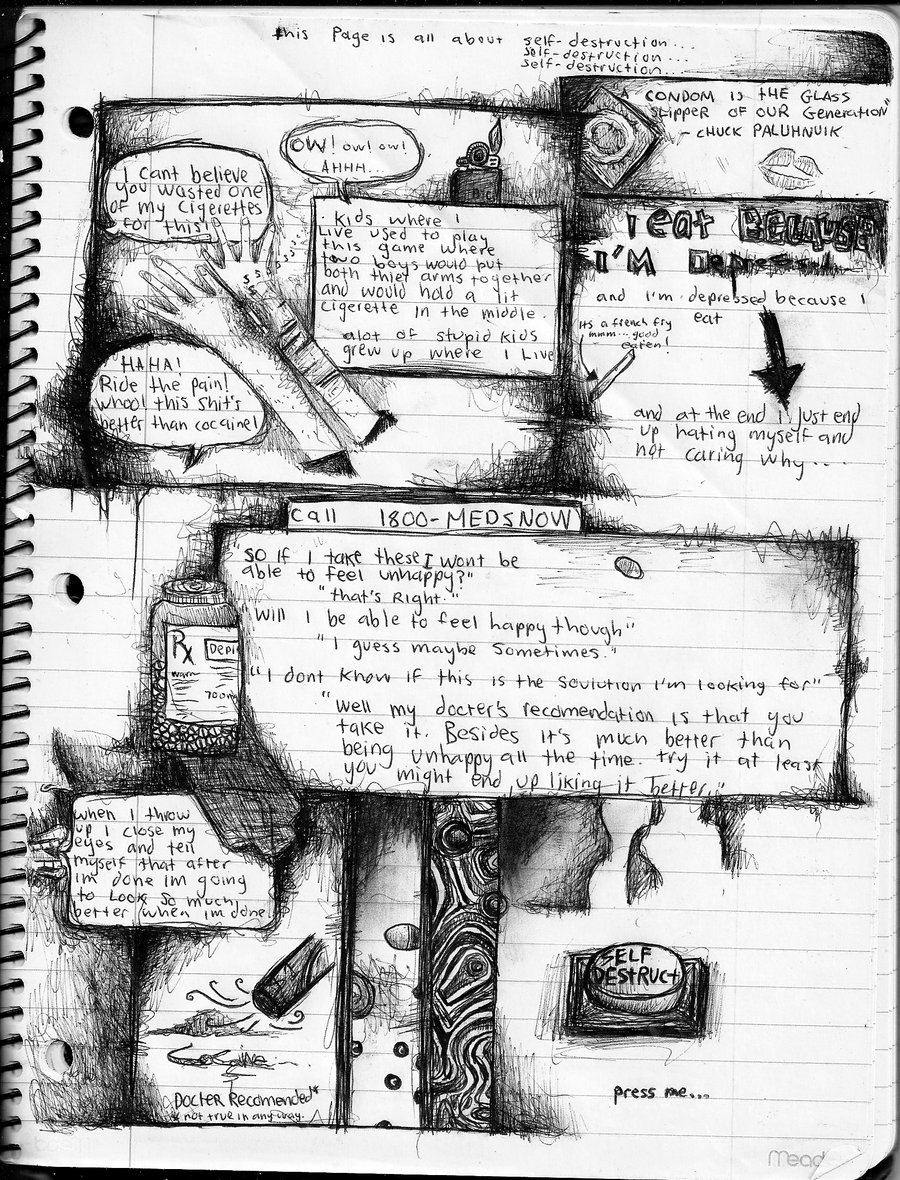 this Page is all about self-destruction...
self-destruction...
self-destruction...
"A CONDOM IS THE GLASS
SLIPPER OF OUR Generation"
- CHUCK PALUHNUIK
I cant believe
you wasted one
of my cigerettes
for this!
OW! ow! ow!
AHHH...
Kids where I
Live used to play
this game where
two boys would put
both thier arms together
and would hold a lit
cigerette in the middle.
alot of stupid kids
grew up where I Live
HAHA!
Ride the pain!
whoo! this shit's
better than cocaine!
I eat BECAUSE
I'M Depressed
and I'm depressed because I
eat
its a french fry
mmm... good
eaten!
and at the end I just end
up hating myself and
not caring why....
Call 1800-MEDSNOW
"SO IF I take these I wont be
able to feel unhappy?"
"that's Right."
"Will I be able to feel happy though"
"I guess maybe sometimes."
"I dont know if this is the soulution I'm looking for"
"Well my docter's recomendation is that you
take it. Besides it's much better than
being unhappy all the time. try it at least
you might end up liking it better."
Rx Depr
warn
700m
when I throw
up I close my
eyes and tell
myself that after
im done im going
to Look so much
better when im done.
Cocaine
Docter Recomended*
* not true in any way.
SELF
DESTRUCT
press me...
Mead